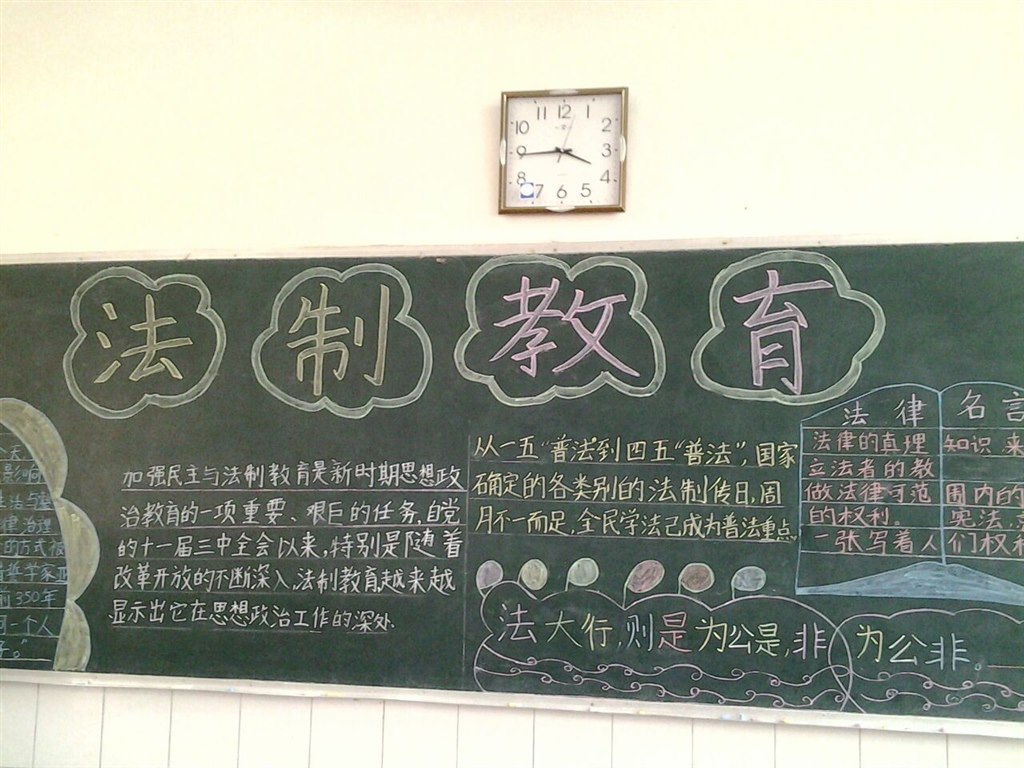 11 12 1
10 2
9 3
8 4
7 6 5
法制教育
影响
律治理
的方式被
前350年
一个人
子。”
加强民主与法制教育是新时期思想政
治教育的一项重要、艰巨的任务,自党
的十一届三中全会以来,特别是随着
改革开放的不断深入,法制教育越来越
显示出它在思想政治工作的深处.
从一五“普法”到四五“普法”,国家
确定的各类别的法制传日,周
月不一而足,全民学法已成为普法重点
法大行,则是为公是,非为公非。
法律名言
法律的真理知识,来
立法者的教
做法律示范围内的
的权利。宪法,
一张写着人们权利